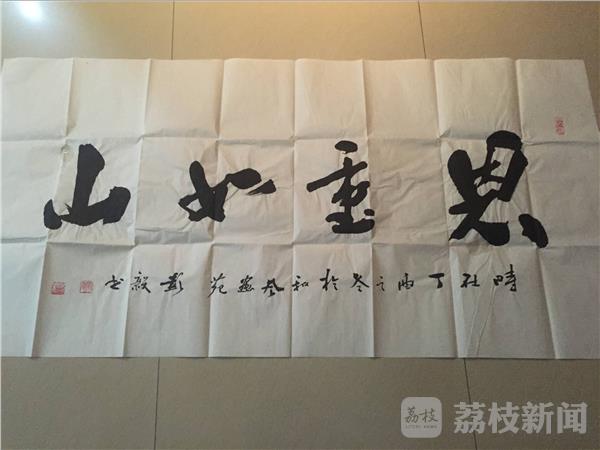 恩重如山
時在丁酉之冬於和苑 彭毅书
荔枝
LITCHI NEWS
荔枝新闻